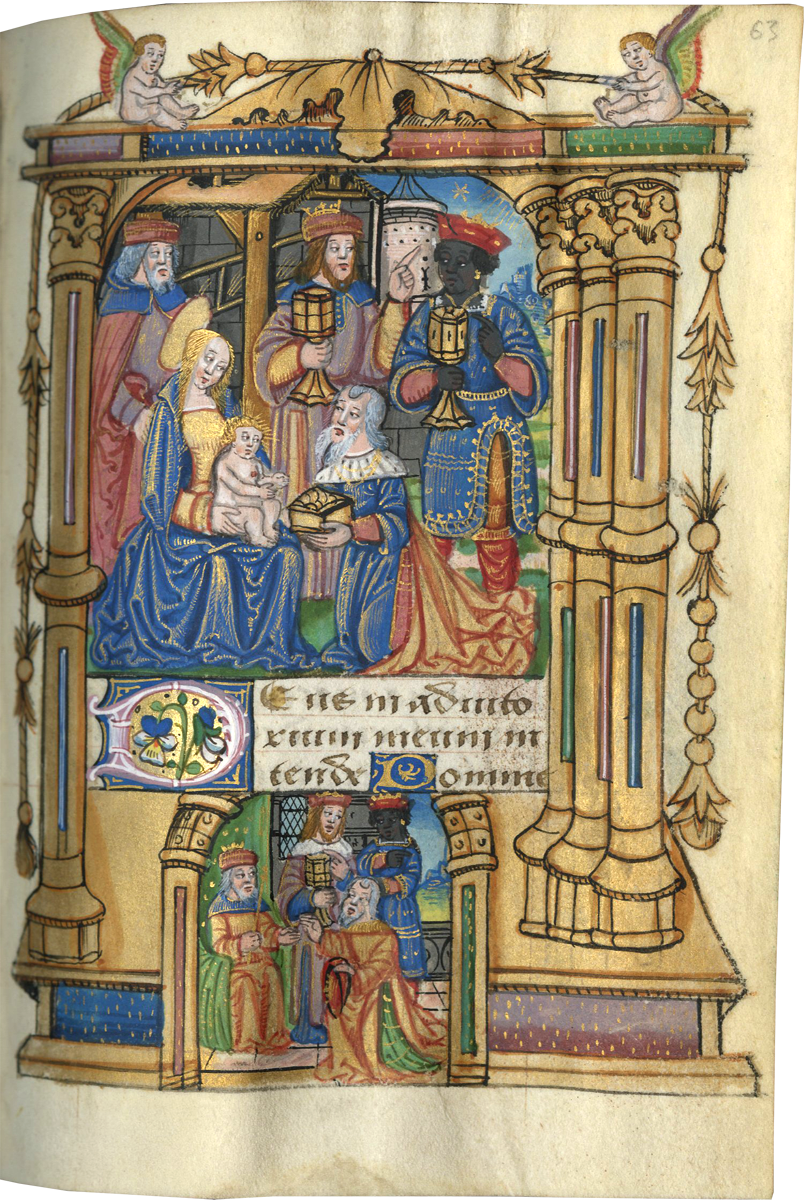 63
Deus in adiuto
rium meum in
tende Domine